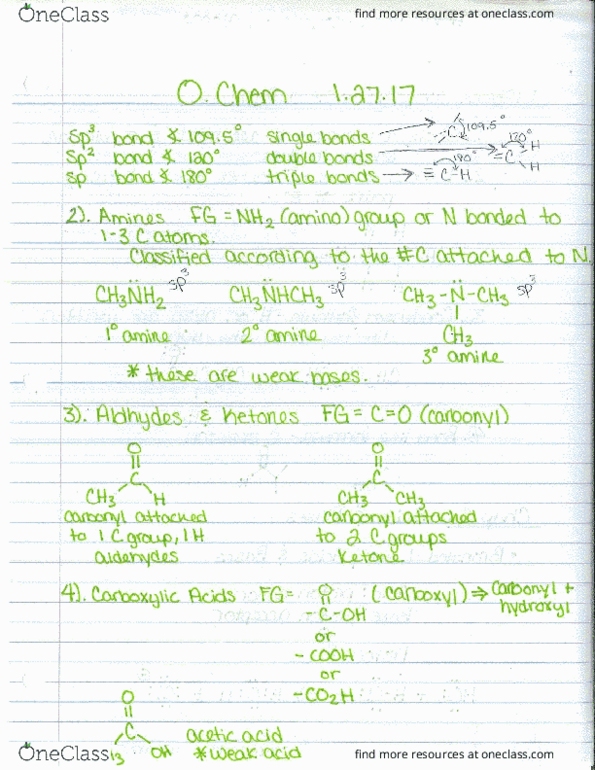 OneClass find more resources at oneclass.com
O. Chem 1.27.17
sp³ bond ∡ 109.5° single bonds → C 109.5°
sp² bond ∡ 120° double bonds → =C H H 120°
sp bond ∡ 180° triple bonds → ≡C-H 180°
2). Amines FG = NH₂ (amino) group or N bonded to
1-3 C atoms.
Classified according to the #C attached to N.
CH₃N̈H₂ sp³ CH₃N̈HCH₃ sp³ CH₃-N̈-CH₃ sp³
CH₃
1° amine 2° amine 3° amine
* these are weak bases.
3). Aldhydes & Ketones FG = C=O (carbonyl)
O O
C C
CH₃ H CH₃ CH₃
carbonyl attached carbonyl attached
to 1 C group, 1 H to 2 C groups
aldehydes Ketone
4). Carboxylic Acids FG = O (carboxyl) ⇒ Carbonyl +
hydroxyl
-C-OH
or
-COOH
or
-CO₂H
O
C acetic acid
OH * weak acid
OneClass find more resources at oneclass.com